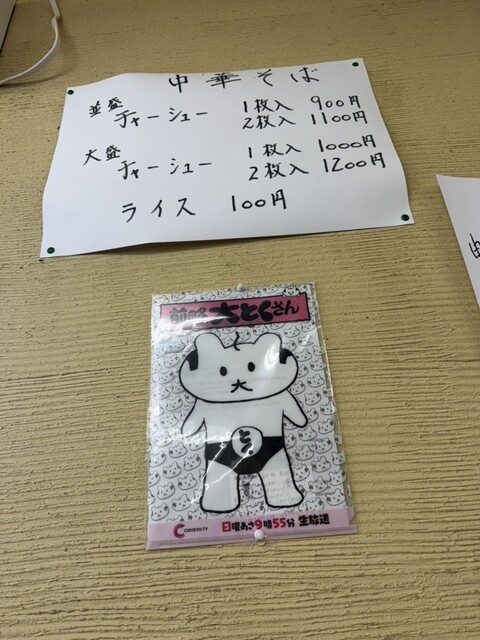 中華そば
並盛
チャーシュー 1枚入 900円
2枚入 1100円
大盛
チャーシュー 1枚入 1000円
2枚入 1200円
ライス 100円
前略大とくさん
大
とく
日曜あさ9時55分 生放送